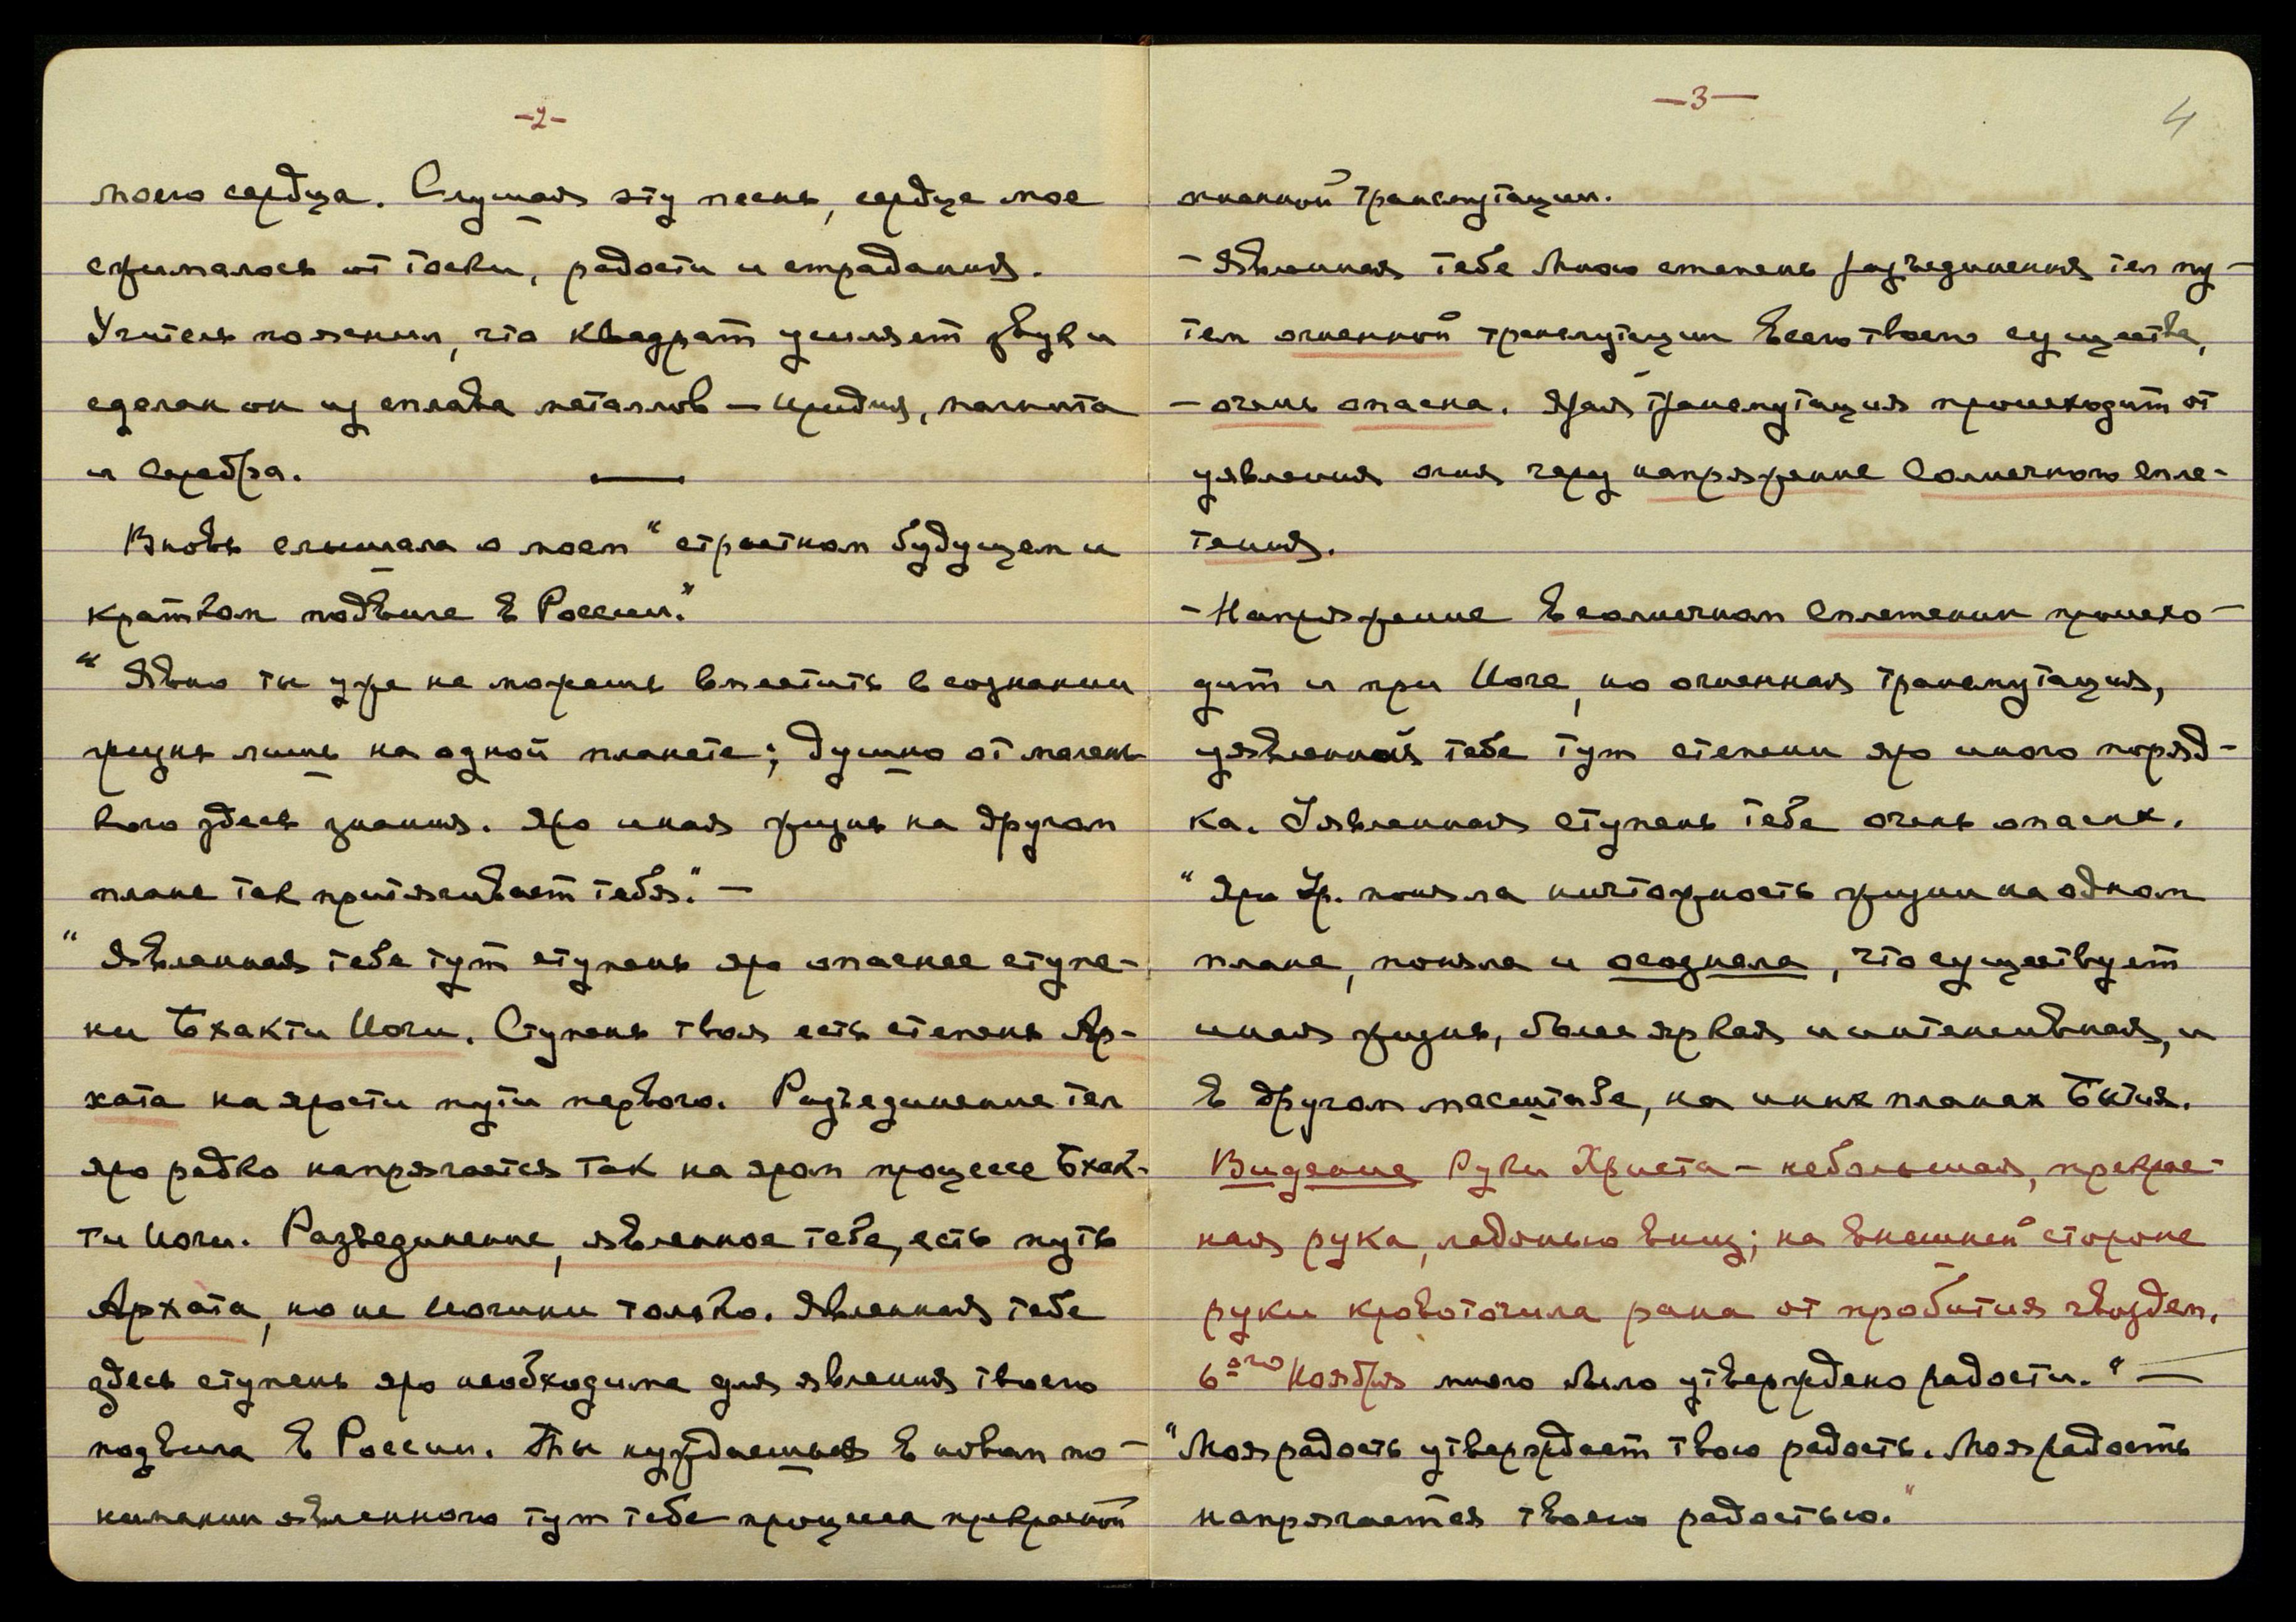 -2-
моего сердца. Слушая эту песнь, сердце мое
сжималось от тоски, радости и страдания.
Учитель пояснил, что квадрат усиляет звуки
сделан он из сплава металлов — иридия, магнита
и серебра.
Вновь слышала о моем "страстном будущем и
кратком подвиге в России."
"Явно ты уже не можешь вместить в сознании
жизнь лишь на одной планете; душно от малень
кого здесь знания. Яро иная жизнь на другом
плане так притягивает тебя." —
"Явленная тебе тут ступень яро опаснее ступе-
ни Бхакти Йоги. Ступень твоя есть степень Ар-
хата на ярости пути первого. Разъединение тел
яро редко напрягается так на яром процессе Бхак-
ти Йоги. Разъединение, явленное тебе, есть путь
Архата, но не Йогини только. Явленная тебе
здесь ступень яро необходима для явления твоего
подвига в России. Ты нуждаешься в новом по-
нимании явленного тут тебе процесса прекрасной
-3-
4
огненной трансмутации.
- Явленная тебе Мною степень разъединения тел пу-
тем огненной трансмутации всего твоего существа,
- очень опасна. Ярая трансмутация происходит от
уявления огня через напряжение Солнечного Спле-
тения.
- Напряжение в солнечном Сплетении происхо-
дит и при Йоге, но огненная трансмутация,
уявленная тебе тут степени яро иного поряд-
ка. Уявленная ступень тебе очень опасна.
"Яро Ур. поняла ничтожность жизни на одном
плане, поняла и осознала, что существует
иная жизнь, более яркая и интенсивная, и
в другом масштабе, на иных планах Бытия.
Видение Руки Христа — небольшая, прекрас-
ная рука, ладонью вниз; на внешней стороне
руки кровоточила рана от пробития гвоздем.
6ого Ноября много было утверждено радости." —
"Моя радость утверждает твою радость. Моя радость
напрягается твоею радостью."